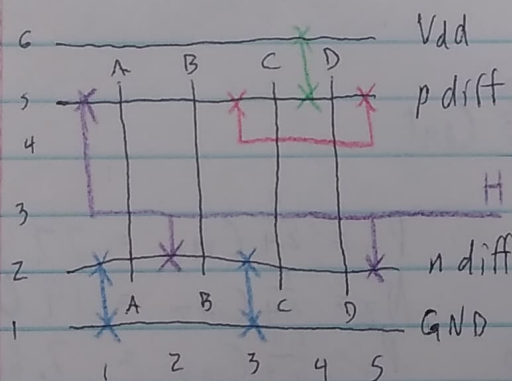 6 Vdd
A B C D
5 p diff
4
3 H
2 n diff
A B C D
1 GND
1 2 3 4 5